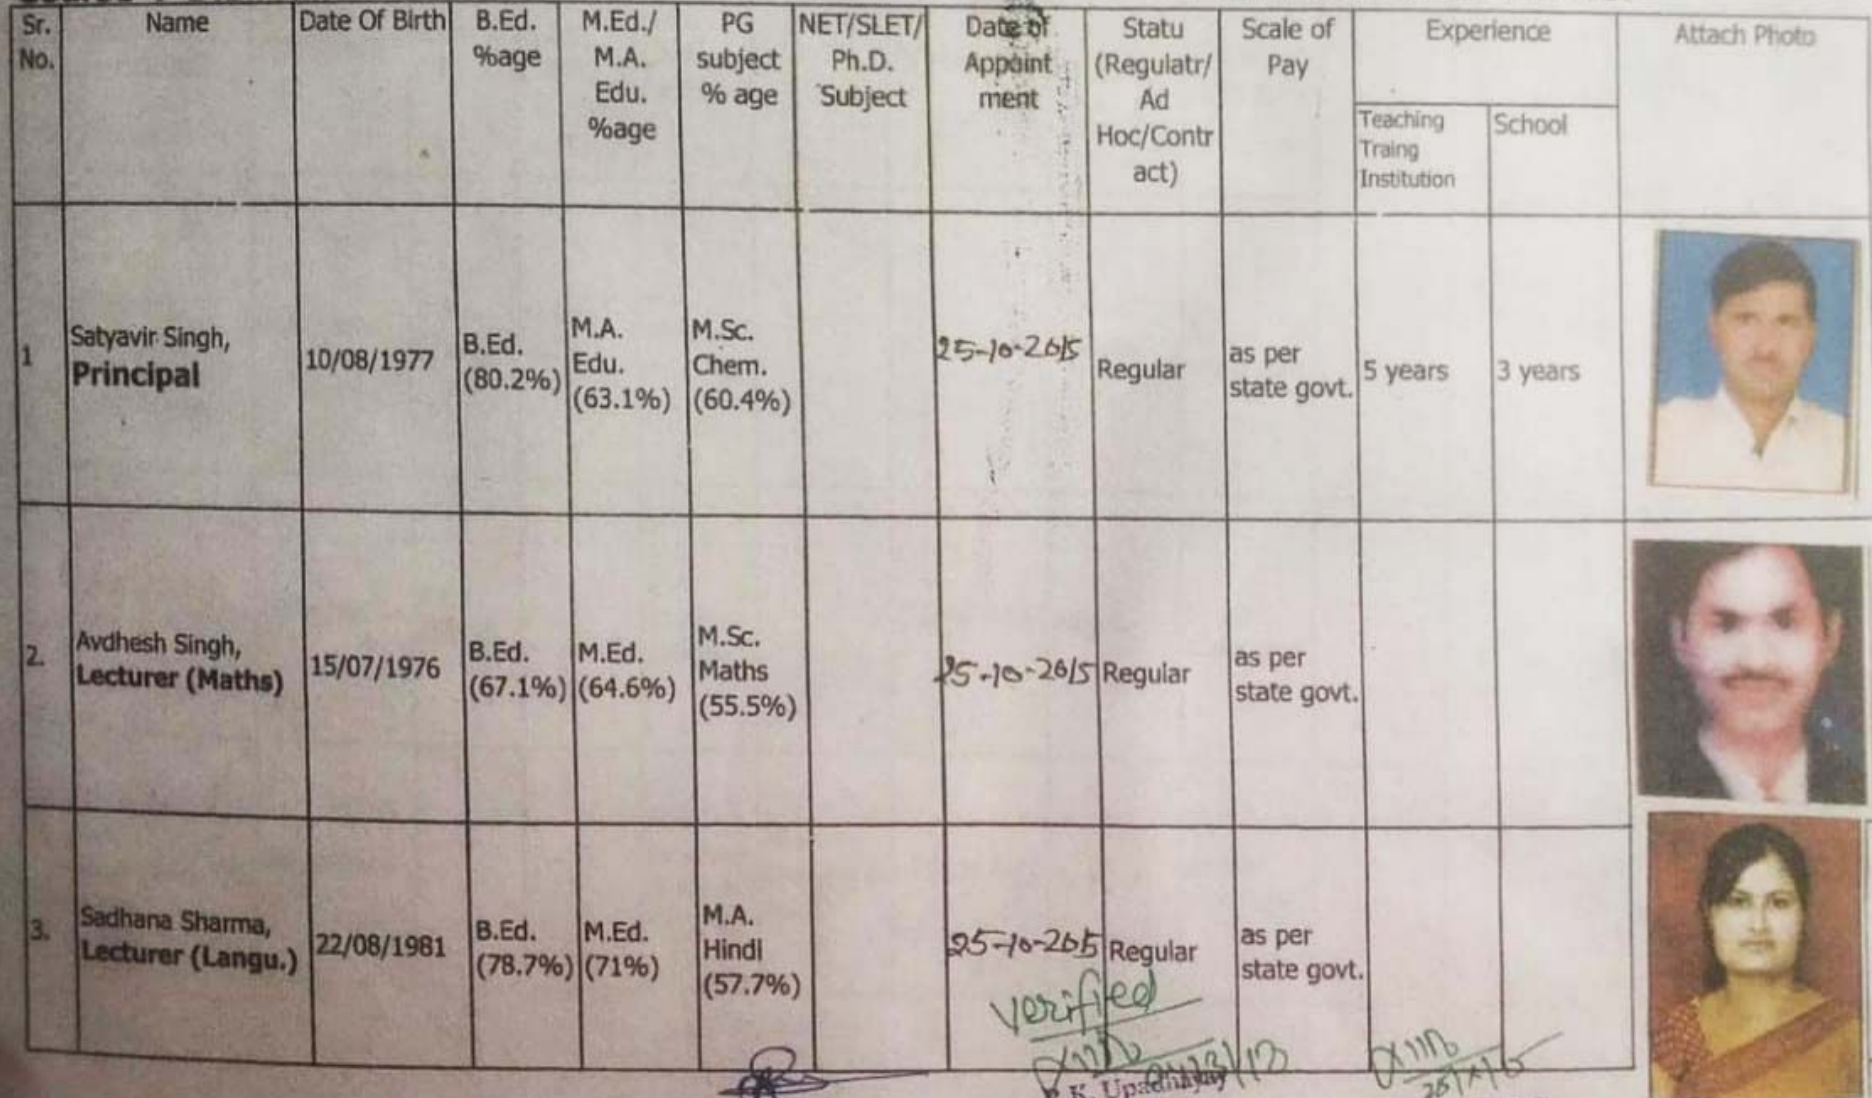 Sr. No.
Name
Date Of Birth
B.Ed. %age
M.Ed./ M.A. Edu. %age
PG subject % age
NET/SLET/ Ph.D. Subject
Date of Appoint ment
Statu (Regulatr/ Ad Hoc/Contr act)
Scale of Pay
Experience
Teaching Traing Institution
School
Attach Photo
1
Satyavir Singh,
Principal
10/08/1977
B.Ed.
(80.2%)
M.A.
Edu.
(63.1%)
M.Sc.
Chem.
(60.4%)
25-10-2015
Regular
as per
state govt.
5 years
3 years
2.
Avdhesh Singh,
Lecturer (Maths)
15/07/1976
B.Ed.
(67.1%)
M.Ed.
(64.6%)
M.Sc.
Maths
(55.5%)
25-10-2015
Regular
as per
state govt.
3.
Sadhana Sharma,
Lecturer (Langu.)
22/08/1981
B.Ed.
(78.7%)
M.Ed.
(71%)
M.A.
Hindi
(57.7%)
25-10-2015
Regular
as per
state govt.
verified
K. Upadhyay